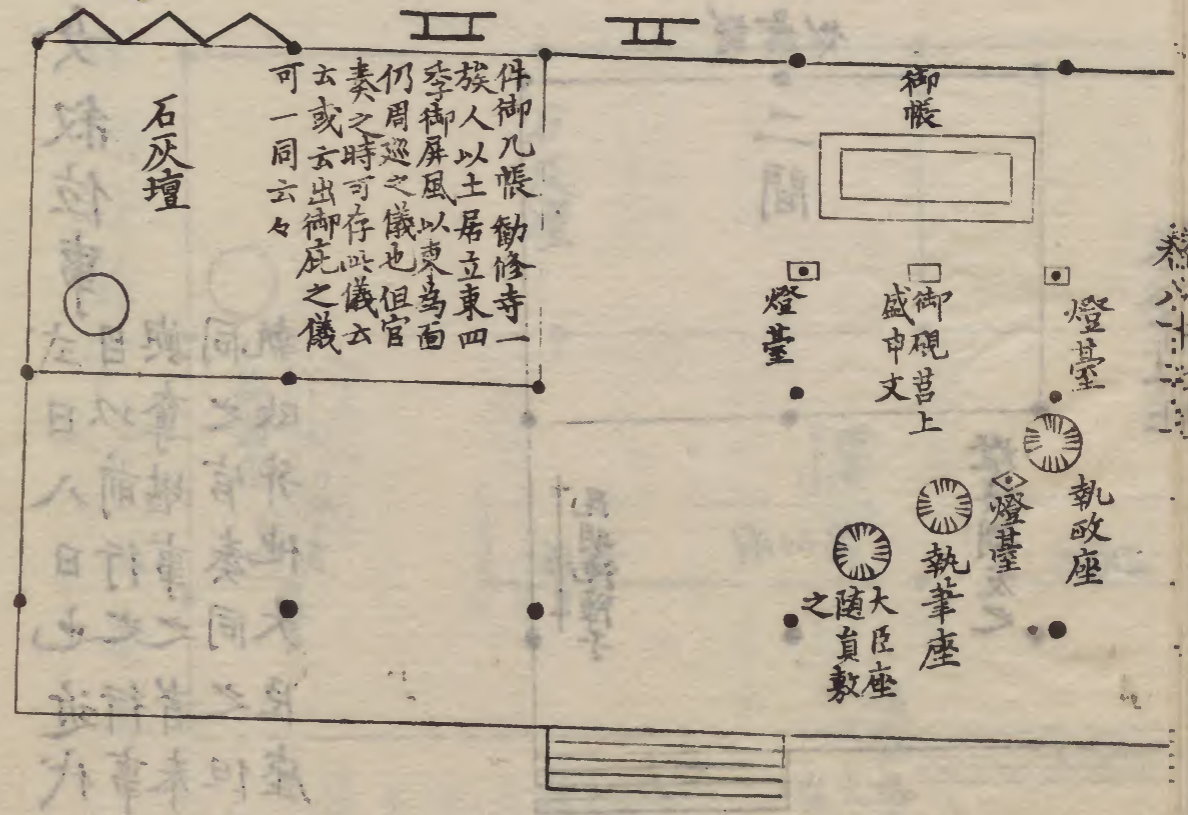 御帳
燈臺
御硯莒上
盛申文
燈臺
執政座
燈臺
執筆座
大臣座
随貟敷
之
件御几帳勧修寺一
族人以土居立東四
季御屏風以東為面
仍周巡之儀也但官
奏之時可存此儀云
云或云出御庇之儀
可一同云々
石灰壇